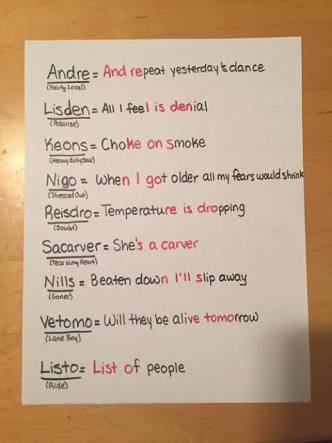 Andre = And repeat yesterday's dance
(Fairly Local)
Lisden = All I feel is denial
(Polarize)
Keons = Choke on smoke
(Heavydirtysoul)
Nigo = When I got older all my fears would shrink
(Stressed Out)
Reisdro = Temperature is dropping
(Doubt)
Sacarver = She's a carver
(Tear in my Heart)
Nills = Beaten down I'll slip away
(Goner)
Vetomo = Will they be alive tomorrow
(Lane Boy)
Listo = List of people
(Ride)